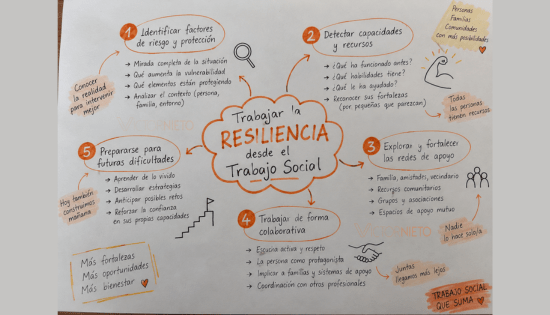 1
Identificar factores
de riesgo y protección
→ Mirada completa de la situación
→ Qué aumenta la vulnerabilidad
→ Qué elementos están protegiendo
→ Analizar el contexto (persona,
familia, entorno)
Conocer
la realidad
para intervenir
mejor
2
Detectar capacidades
y recursos
→ ¿Qué ha funcionado antes?
→ ¿Qué habilidades tiene?
→ ¿Qué le ha ayudado?
→ Reconocer sus fortalezas
(por pequeñas que parezcan)
Personas
Familias
Comunidades
con más posibilidades
Todas
las personas
tienen recursos
Trabajar la
RESILIENCIA
desde el
Trabajo Social
3
Explorar y fortalecer
las redes de apoyo
→ Familia, amistades, vecindario
→ Recursos comunitarios
→ Grupos y asociaciones
→ Espacios de apoyo mutuo
Nadie
lo hace solo/a
4
Trabajar de forma
colaborativa
→ Escucha activa y respeto
→ La persona como protagonista
→ Implicar a familias y sistemas de apoyo
→ Coordinación con otros profesionales
Juntas
llegamos más lejos
5
Prepararse para
futuras dificultades
→ Aprender de lo vivido
→ Desarrollar estrategias
→ Anticipar posibles retos
→ Reforzar la confianza
en sus propias capacidades
Hoy también
construimos
mañana
Más fortalezas
Más oportunidades
Más bienestar
TRABAJO SOCIAL
QUE SUMA